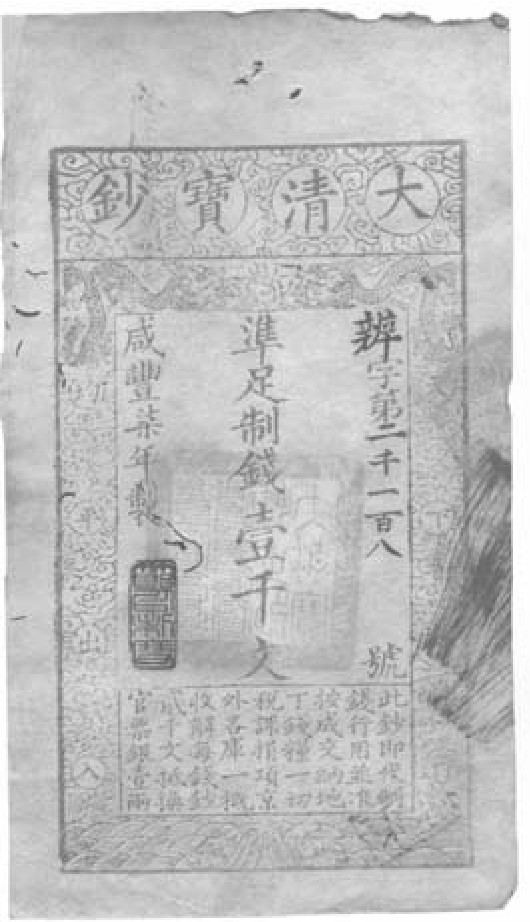 大清寶鈔
辨字第二千一百八號
準足制錢壹千文
咸豐柒年製
平出入
此鈔即代制
錢行用並准
按成交納地
丁錢糧一切
稅課捐項京
外各庫一概
收解每錢鈔
貳千文抵換
官票銀壹兩